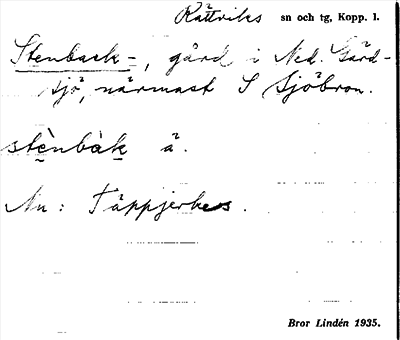 Rättviks sn och tg, Kopp. l.
Stenback-, gård i Ned. Gärd-
sjö, närmast S Sjöbron.
stènbàk å.
Nu: Täppjerkes.
Bror Lindén 1935.